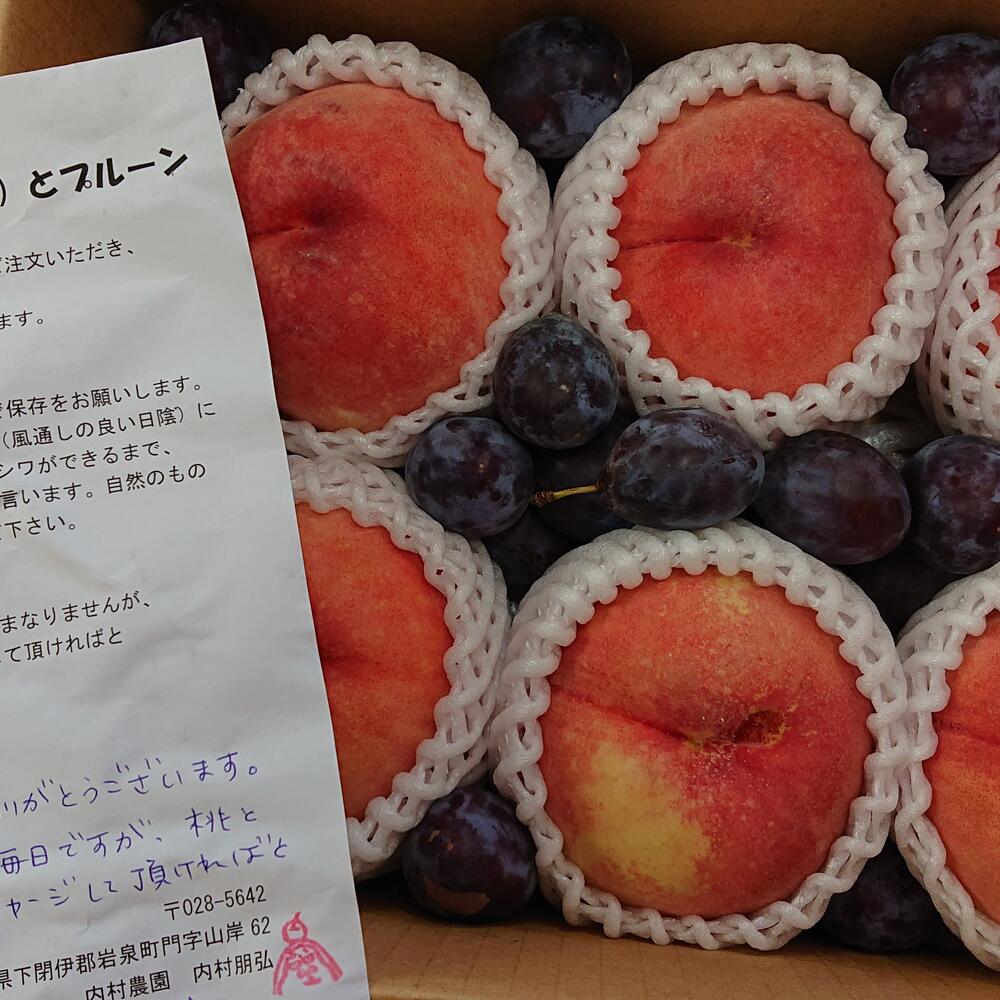 ）とプルーン
ご注文いただき、
ます。
で保存をお願いします。
（風通しの良い日陰）に
シワができるまで、
言います。自然のもの
下さい。
まなりませんが、
て頂ければと
りがとうございます。
毎日ですが、桃と
ャージして頂ければと
〒028-5642
県下閉伊郡岩泉町門字山岸 62
内村農園　内村朋弘